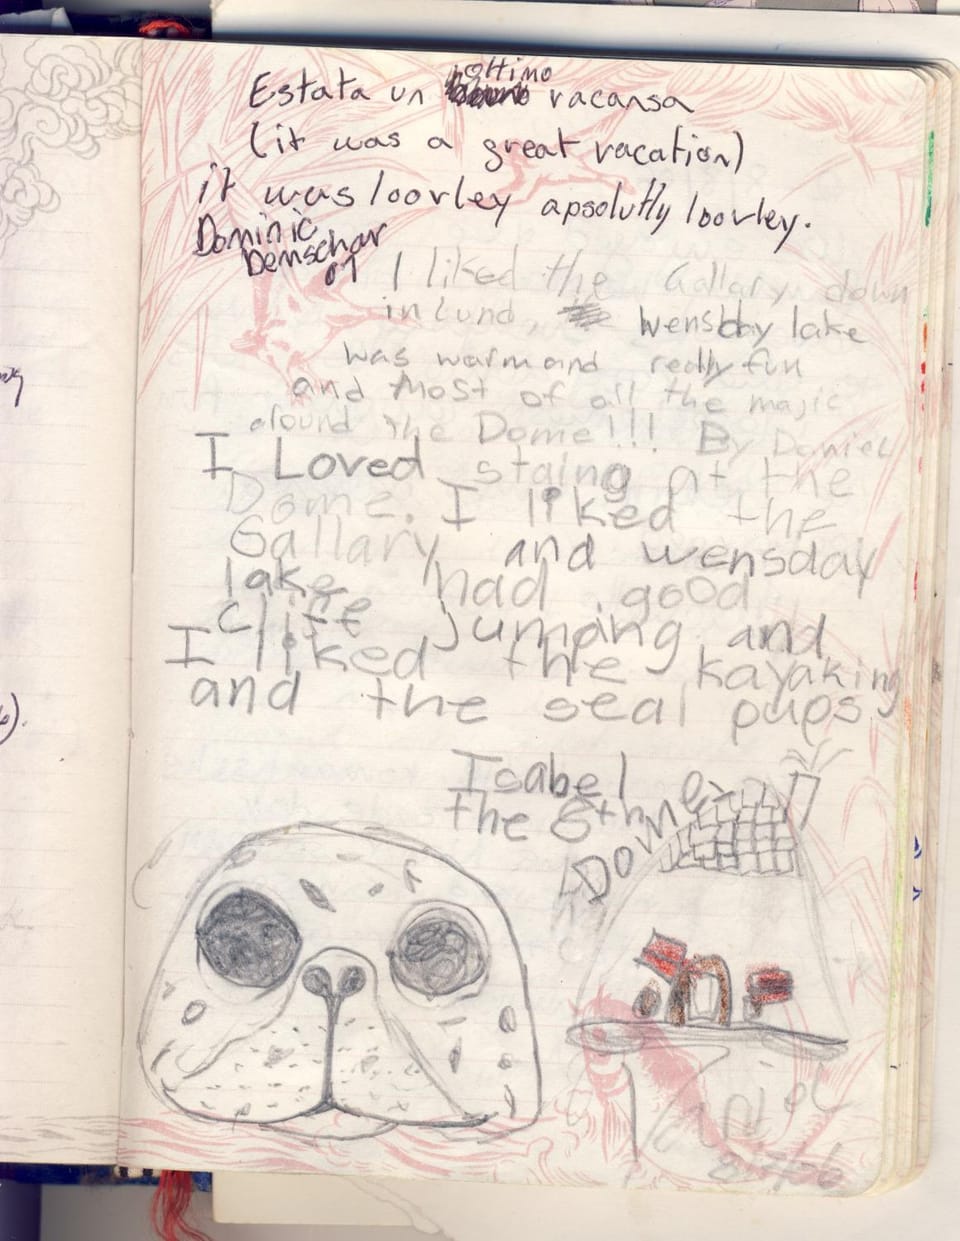 Estata un ottimo vacansa
(it was a great vacation)
it was loovley apsolutly loovley.
Dominic
Demschar
I liked the Gallary down
in Lund, Wensday lake
was warm and really fun
and Most of all the majic
around the Dome!!! By Daniel
I Loved staing at the
Dome. I liked the
Gallary and wensday
lake had good
cliff jumping and
I liked the kayaking
and the seal pups
Isabel
the
Dome